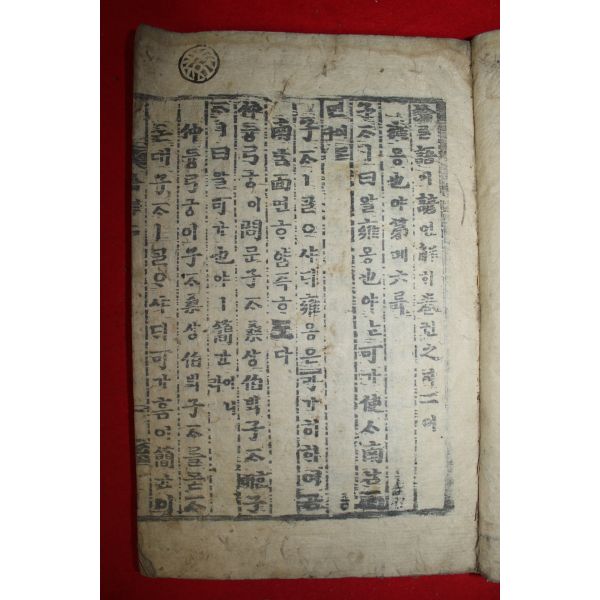 論론語어諺언解ᄒᆡ卷권之지二이
雍옹也야第뎨六륙
子ᄌᆞㅣ曰왈雍옹也야ᄂᆞᆫ可가使ᄉᆞ南남面
子ᄌᆞㅣᄀᆞᆯᄋᆞ샤ᄃᆡ雍옹은可가히ᄒᆞ여곰
南남面면ᄒᆞ얌즉ᄒᆞ도다
仲듕弓궁이問문子ᄌᆞ桑상伯ᄇᆡᆨ子ᄌᆞ子
ᄌᆞㅣ曰왈可가也야ㅣ簡간
仲듕弓궁이子ᄌᆞ桑상伯ᄇᆡᆨ子ᄌᆞ를묻ᄌᆞ
온대子ᄌᆞㅣᄀᆞᆯᄋᆞ샤ᄃᆡ可가홈이簡간이